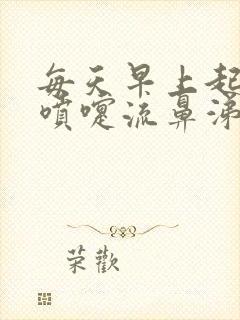 每天早上起
噴嚏流鼻涕
荣歡